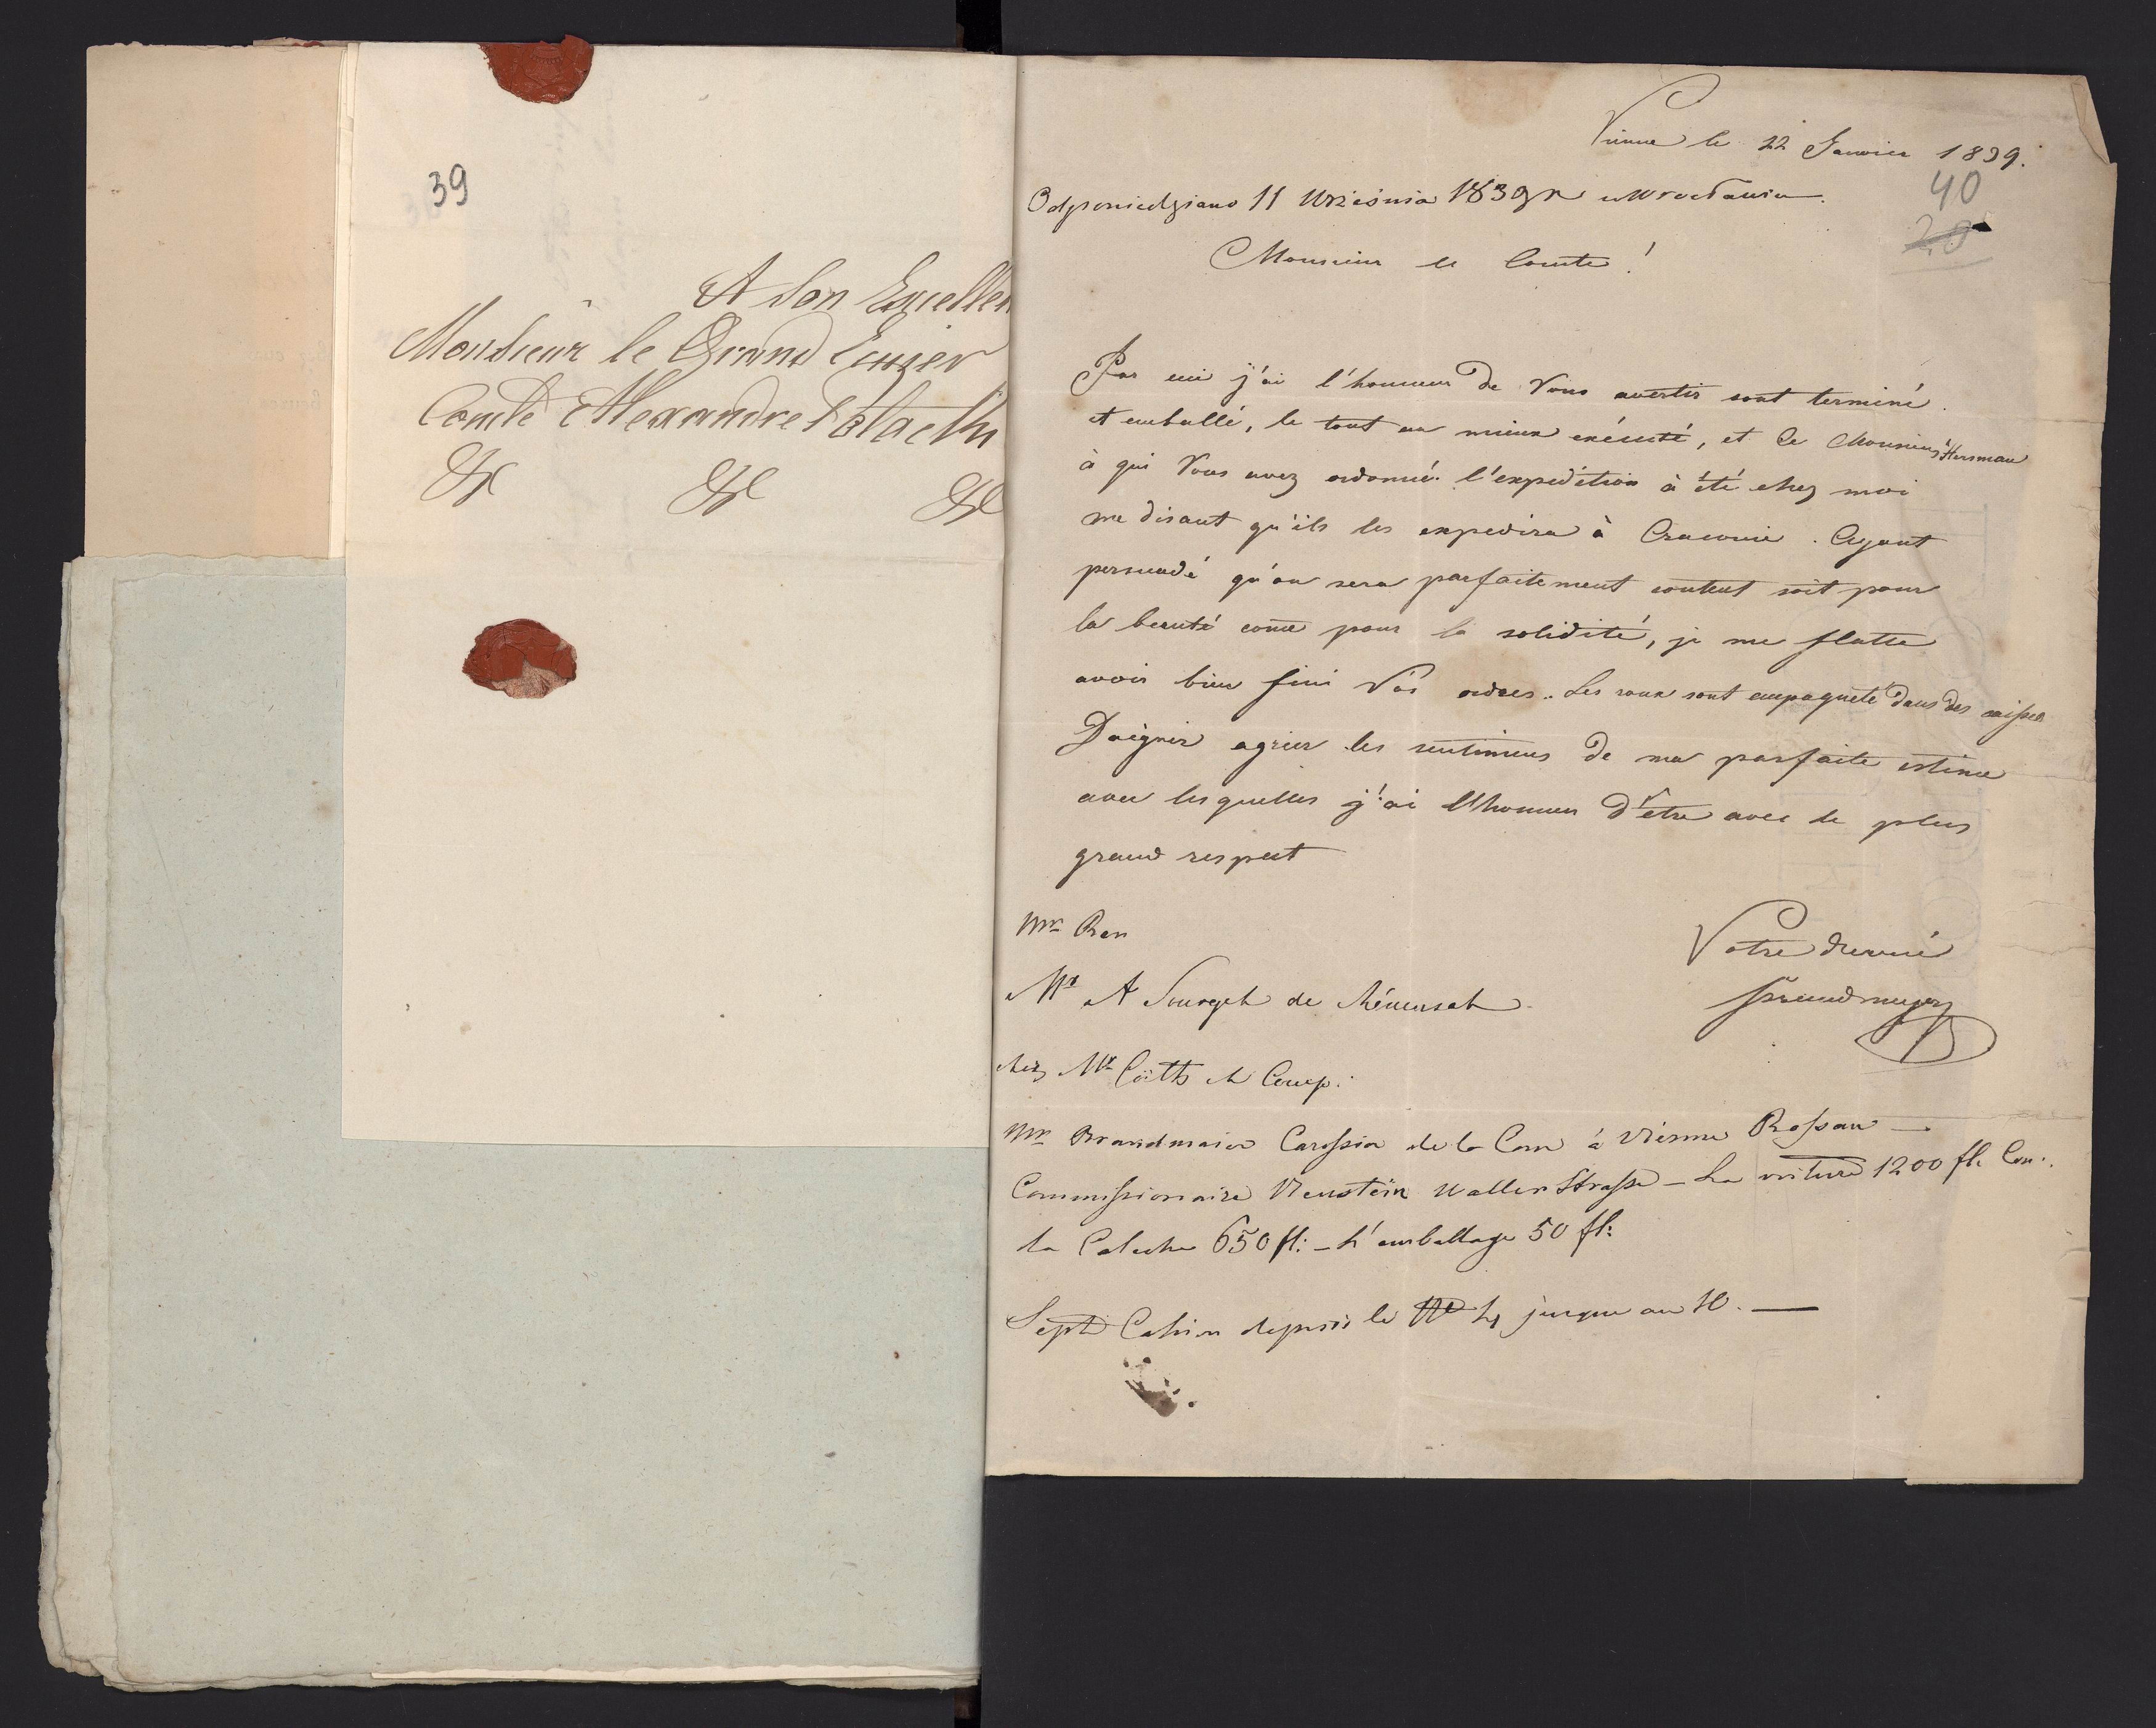 39
A Son Excellen
Monsieur le Grand Ecuyer
Comte Alexandre Potocki
&c &c &c
Vienne le 22 Janvier 1839.
40
20
Odpowiedziano 11 Września 1839 r w Wrocławiu.
Monsieur le Comte!
Par ceci j'ai l'honneur de Vous avertir sont terminé
et emballé, le tout au mieux exécuté, et le Monsieur Hersman
à qui Vous avez ordonné l'expedition à été chez moi
me disant qu'ils les expedira à Cracovie. Ayant
persuadé qu'on sera parfaitement content soit pour
la beauté come pour la solidité, je me flatte
avoir bien fini Vos ordres. Les roux sont empaqueté dans des caisses
Daigner agrier les sentimens de ma parfaite estime
avec lesquelles j'ai l'honneur d'être avec le plus
grand respect
Votre devoué
Mr
Mr A de
chez Mr et Comp:
Mr Brandmaier Carossier de la Cour à Vienne Rossau —
Commissionaire Neustein Waller Strasse — La voiture 1200 fl. Con:.
la Caleche 650 fl: — L'emballage 50 fl:
Sept Cahier depuis le No 4 jusque au 10. —